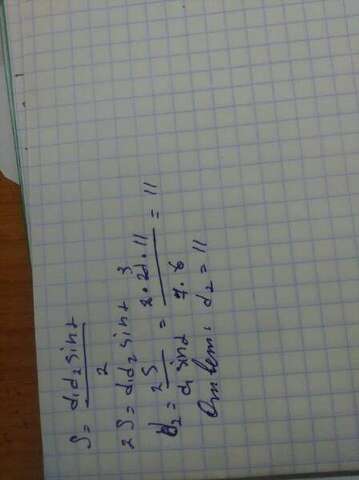 S = d₁d₂ sin α / 2
2S = d₁d₂ sin α
d₂ = 2S / d₁ sin α = 2 · 21 · 11 3 / 7 · 6 = 11
Ответ: d₂ = 11